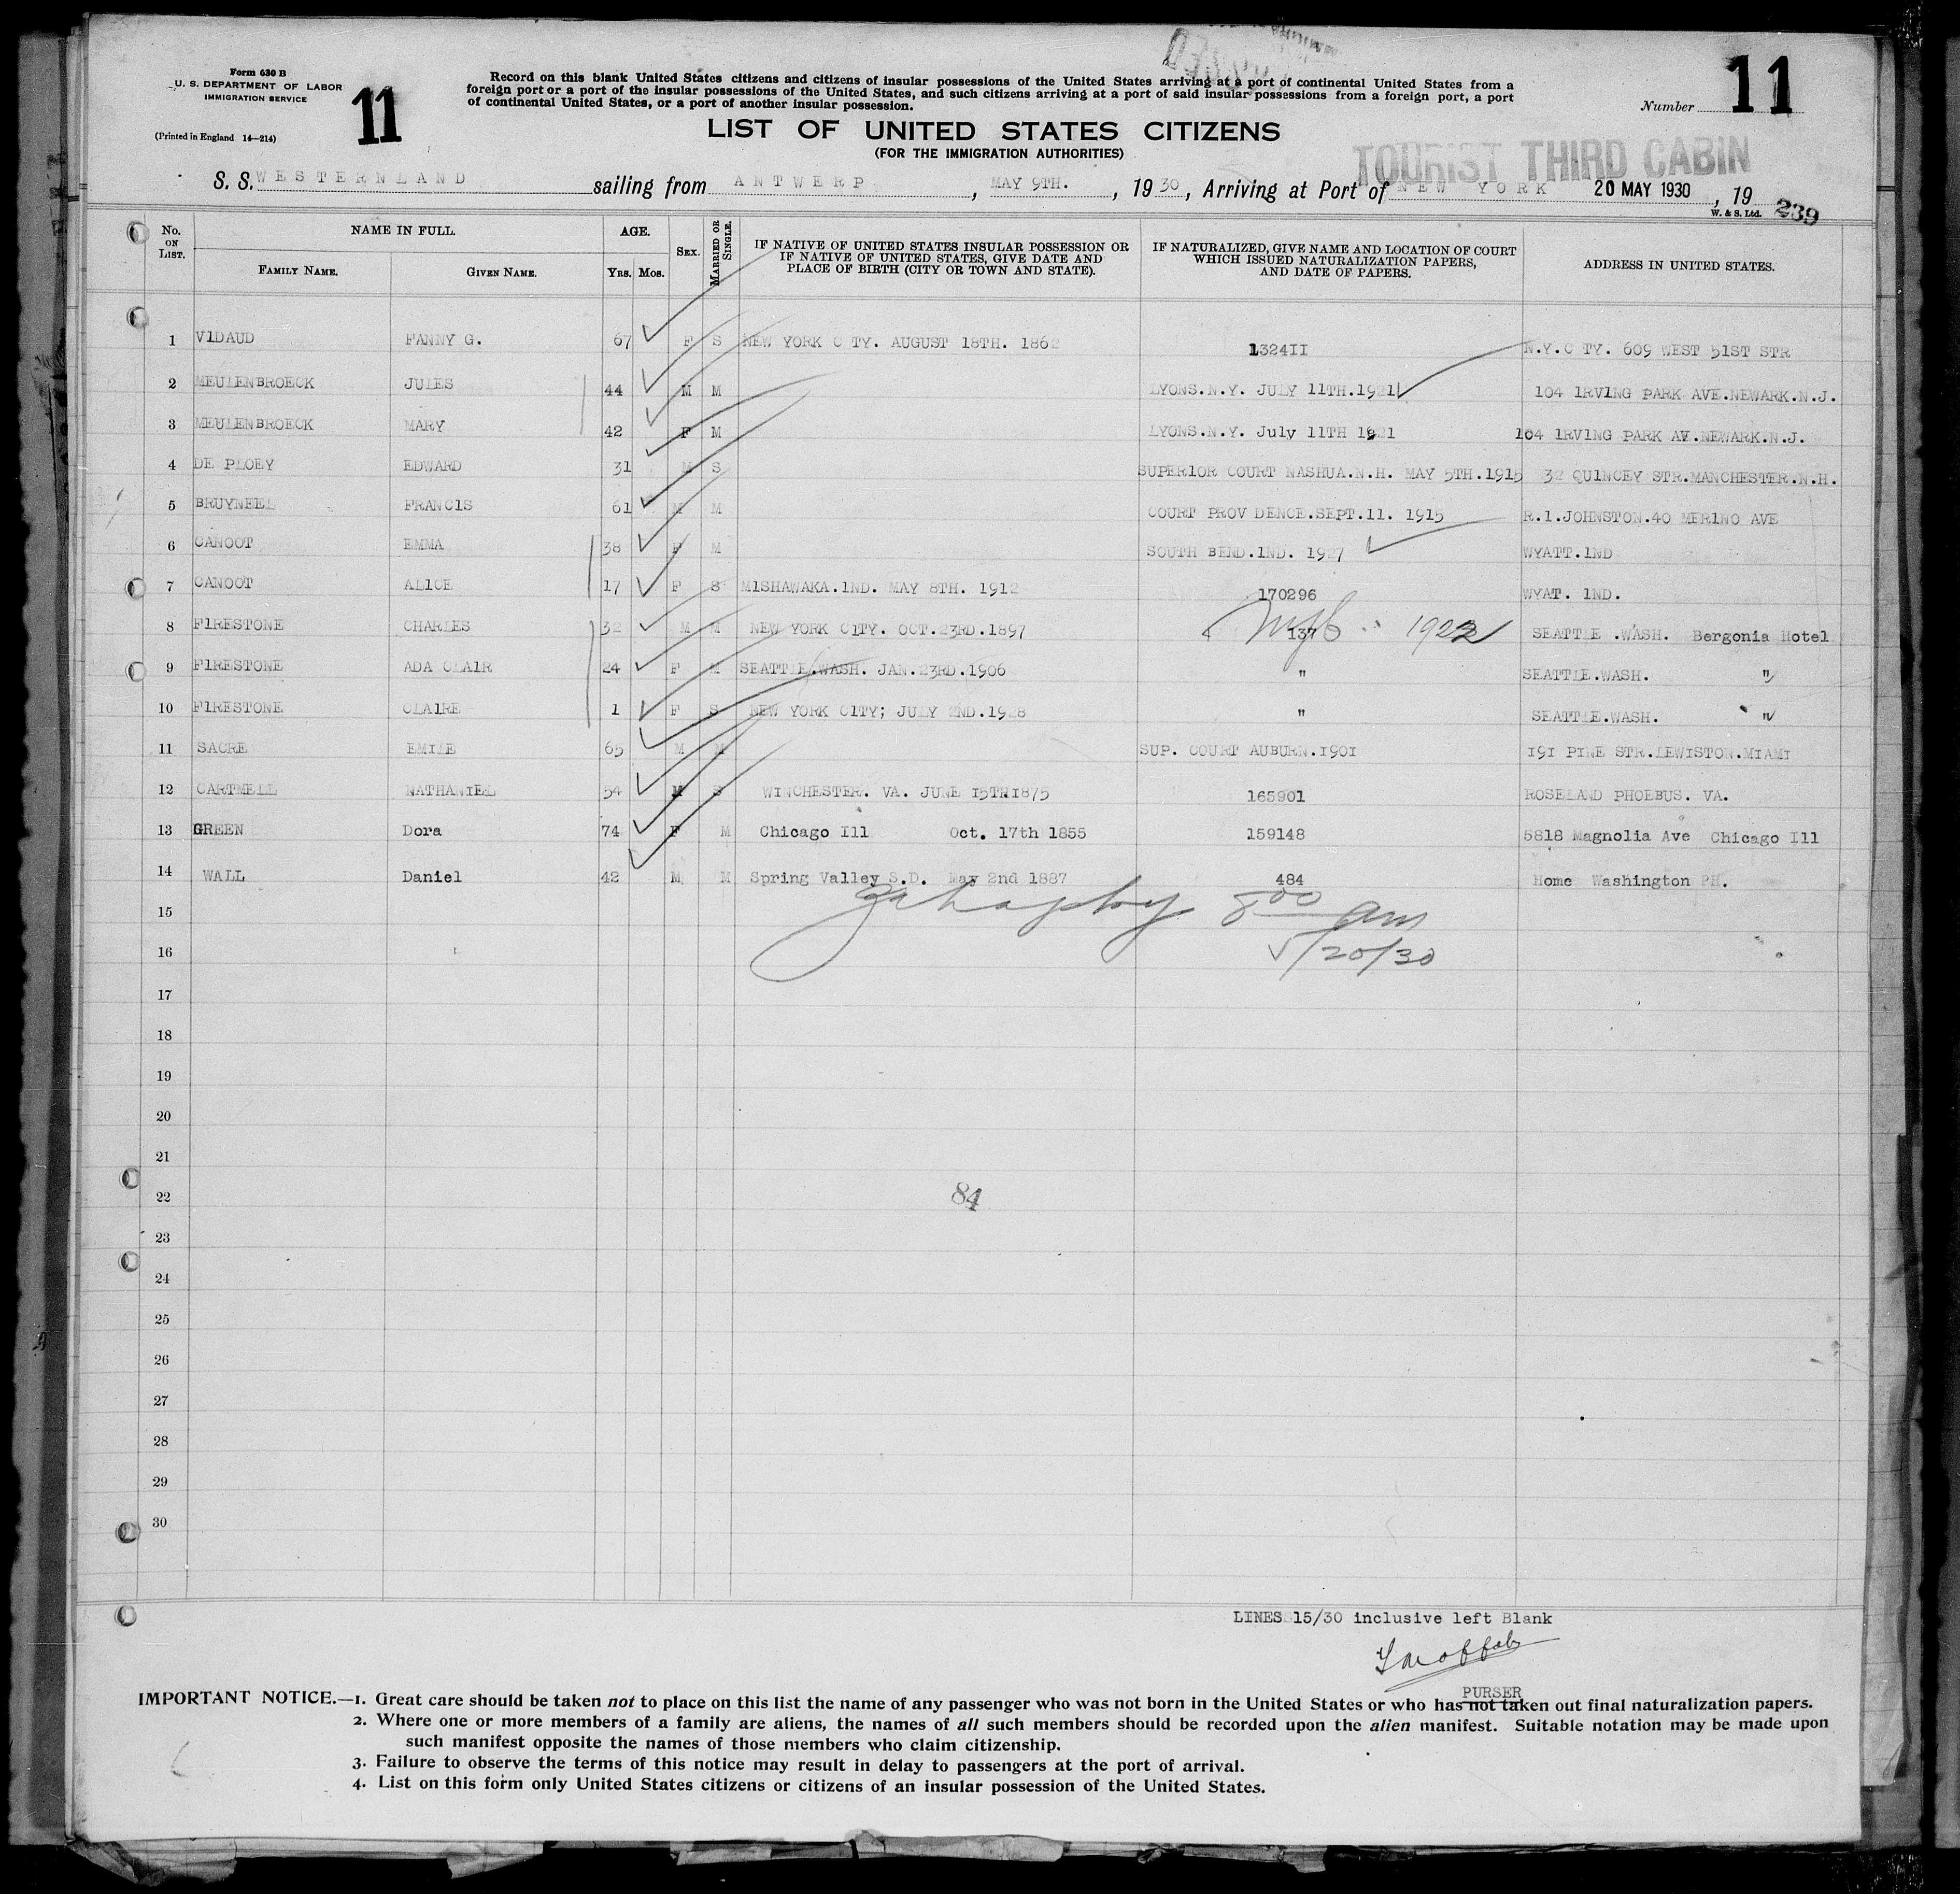 Form 630 B
U. S. DEPARTMENT OF LABOR
IMMIGRATION SERVICE
(Printed in England 14—214)
11
Record on this blank United States citizens and citizens of insular possessions of the United States arriving at a port of continental United States from a
foreign port or a port of the insular possessions of the United States, and such citizens arriving at a port of said insular possessions from a foreign port, a port
of continental United States, or a port of another insular possession.
Number 11
LIST OF UNITED STATES CITIZENS
(FOR THE IMMIGRATION AUTHORITIES)
TOURIST THIRD CABIN
S. S. WESTERNLAND sailing from ANTWERP, MAY 9TH., 1930, Arriving at Port of NEW YORK 20 MAY 1930, 19
W. & S. Ltd. 239
No. ON LIST. NAME IN FULL. FAMILY NAME. GIVEN NAME. AGE. YRS. MOS. SEX. MARRIED OR SINGLE. IF NATIVE OF UNITED STATES INSULAR POSSESSION OR IF NATIVE OF UNITED STATES, GIVE DATE AND PLACE OF BIRTH (CITY OR TOWN AND STATE). IF NATURALIZED, GIVE NAME AND LOCATION OF COURT WHICH ISSUED NATURALIZATION PAPERS, AND DATE OF PAPERS. ADDRESS IN UNITED STATES.
1 VIDAUD FANNY G. 67 F S NEW YORK C TY. AUGUST 18TH. 1862 132411 N.Y.C TY. 609 WEST 51ST STR
2 MEULENBROECK JULES 44 M M LYONS.N.Y. JULY 11TH.1921 104 IRVING PARK AVE.NEWARK.N.J.
3 MEULENBROECK MARY 42 F M LYONS.N.Y. July 11TH 1921 104 IRVING PARK AV.NEWARK.N.J.
4 DE PLOEY EDWARD 31 M S SUPERIOR COURT NASHUA.N.H. MAY 5TH.1915 32 QUINCEY STR.MANCHESTER.N.H.
5 BRUYNEEL FRANCIS 61 M M COURT PROV DENCE.SEPT.11. 1915 R.I.JOHNSTON.40 MERINO AVE
6 CANOOT EMMA 38 F M SOUTH BEND.IND. 1927 WYATT.IND
7 CANOOT ALICE 17 F S MISHAWAKA.IND. MAY 8TH. 1912 170296 WYAT. IND.
8 FIRESTONE CHARLES 32 M M NEW YORK CITY. OCT.23RD.1897 1376 1922 SEATTLE .WASH. Bergonia Hotel
9 FIRESTONE ADA CLAIR 24 F M SEATTLE.WASH. JAN.23RD.1906 " SEATTLE.WASH. "
10 FIRESTONE CLAIRE 1 F S NEW YORK CITY; JULY 2ND.1928 " SEATTLE.WASH. "
11 SACRE EMILE 65 M M SUP. COURT AUBURN.1901 191 PINE STR.LEWISTON.MIAMI
12 CARTMELL NATHANIEL 54 M S WINCHESTER. VA. JUNE 15TH1875 165901 ROSELAND PHOEBUS. VA.
13 GREEN Dora 74 F M Chicago Ill Oct. 17th 1855 159148 5818 Magnolia Ave Chicago Ill
14 WALL Daniel 42 M M Spring Valley S.D. May 2nd 1887 484 Home Washington PH.
15 8 00 am
16 5/20/30
17
18
19
20
21
22 84
23
24
25
26
27
28
29
30
LINES 15/30 inclusive left Blank
PURSER
IMPORTANT NOTICE.—1. Great care should be taken not to place on this list the name of any passenger who was not born in the United States or who has not taken out final naturalization papers.
2. Where one or more members of a family are aliens, the names of all such members should be recorded upon the alien manifest. Suitable notation may be made upon
such manifest opposite the names of those members who claim citizenship.
3. Failure to observe the terms of this notice may result in delay to passengers at the port of arrival.
4. List on this form only United States citizens or citizens of an insular possession of the United States.